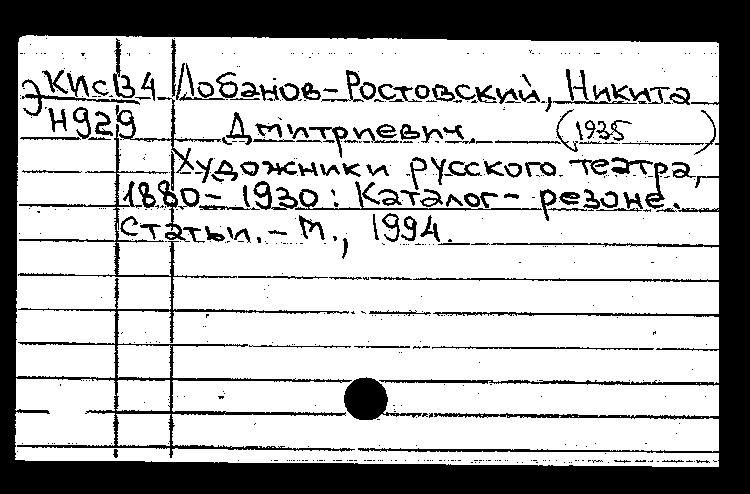 Э КИс134 Лобанов-Ростовский, Никита
Н929 Дмитриевич. (1935 )
Художники русского театра,
1880-1930: Каталог-резоне.
Статьи.-М., 1994.